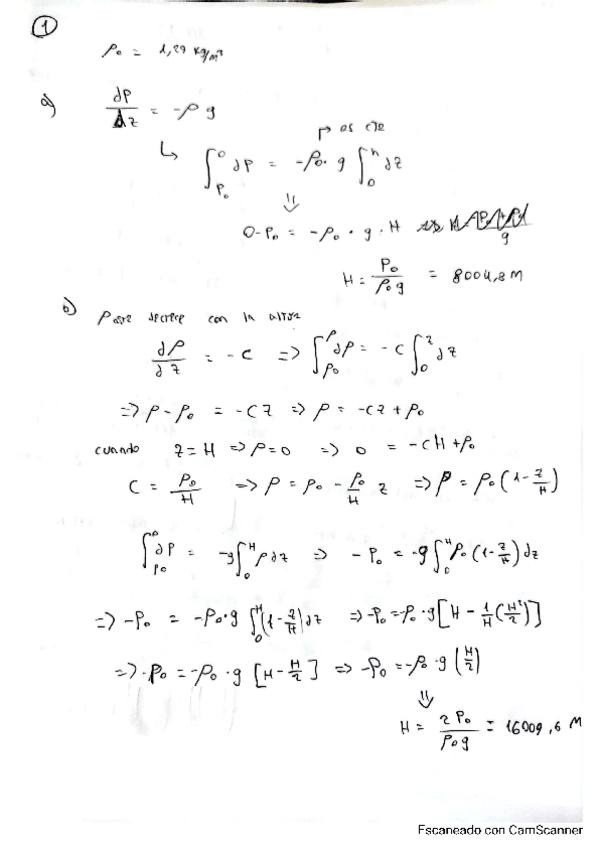 1
ρ₀ = 1,29 kg/m³
a) dP/dz = -ρ g
↳ ∫_{P₀}^{0} dP = -ρ₀ · g ∫_{0}^{h} dz → es cte
⇓
0-P₀ = -ρ₀ · g · H
H = P₀/ρ₀g = 8004,8 m
b) ρaire decrece con la altura
dρ/dz = -c => ∫_{ρ₀}^{ρ} dρ = -c ∫_{0}^{z} dz
=> ρ-ρ₀ = -cz => ρ = -cz + ρ₀
cuando z = H => ρ=0 => 0 = -cH + ρ₀
C = ρ₀/H => ρ = ρ₀ - ρ₀/H z => ρ = ρ₀ (1 - z/H)
∫_{P₀}^{0} dP = -g ∫_{0}^{H} ρ dz => -P₀ = -g ∫_{0}^{H} ρ₀ (1 - z/H) dz
=> -P₀ = -ρ₀ · g ∫_{0}^{H} (1 - z/H) dz => -P₀ = -ρ₀ · g [H - 1/H (H²/2)]
=> -P₀ = -ρ₀ · g [H - H/2] => -P₀ = -ρ₀ · g (H/2)
⇓
H = 2P₀/ρ₀g = 16009,6 m
Escaneado con CamScanner